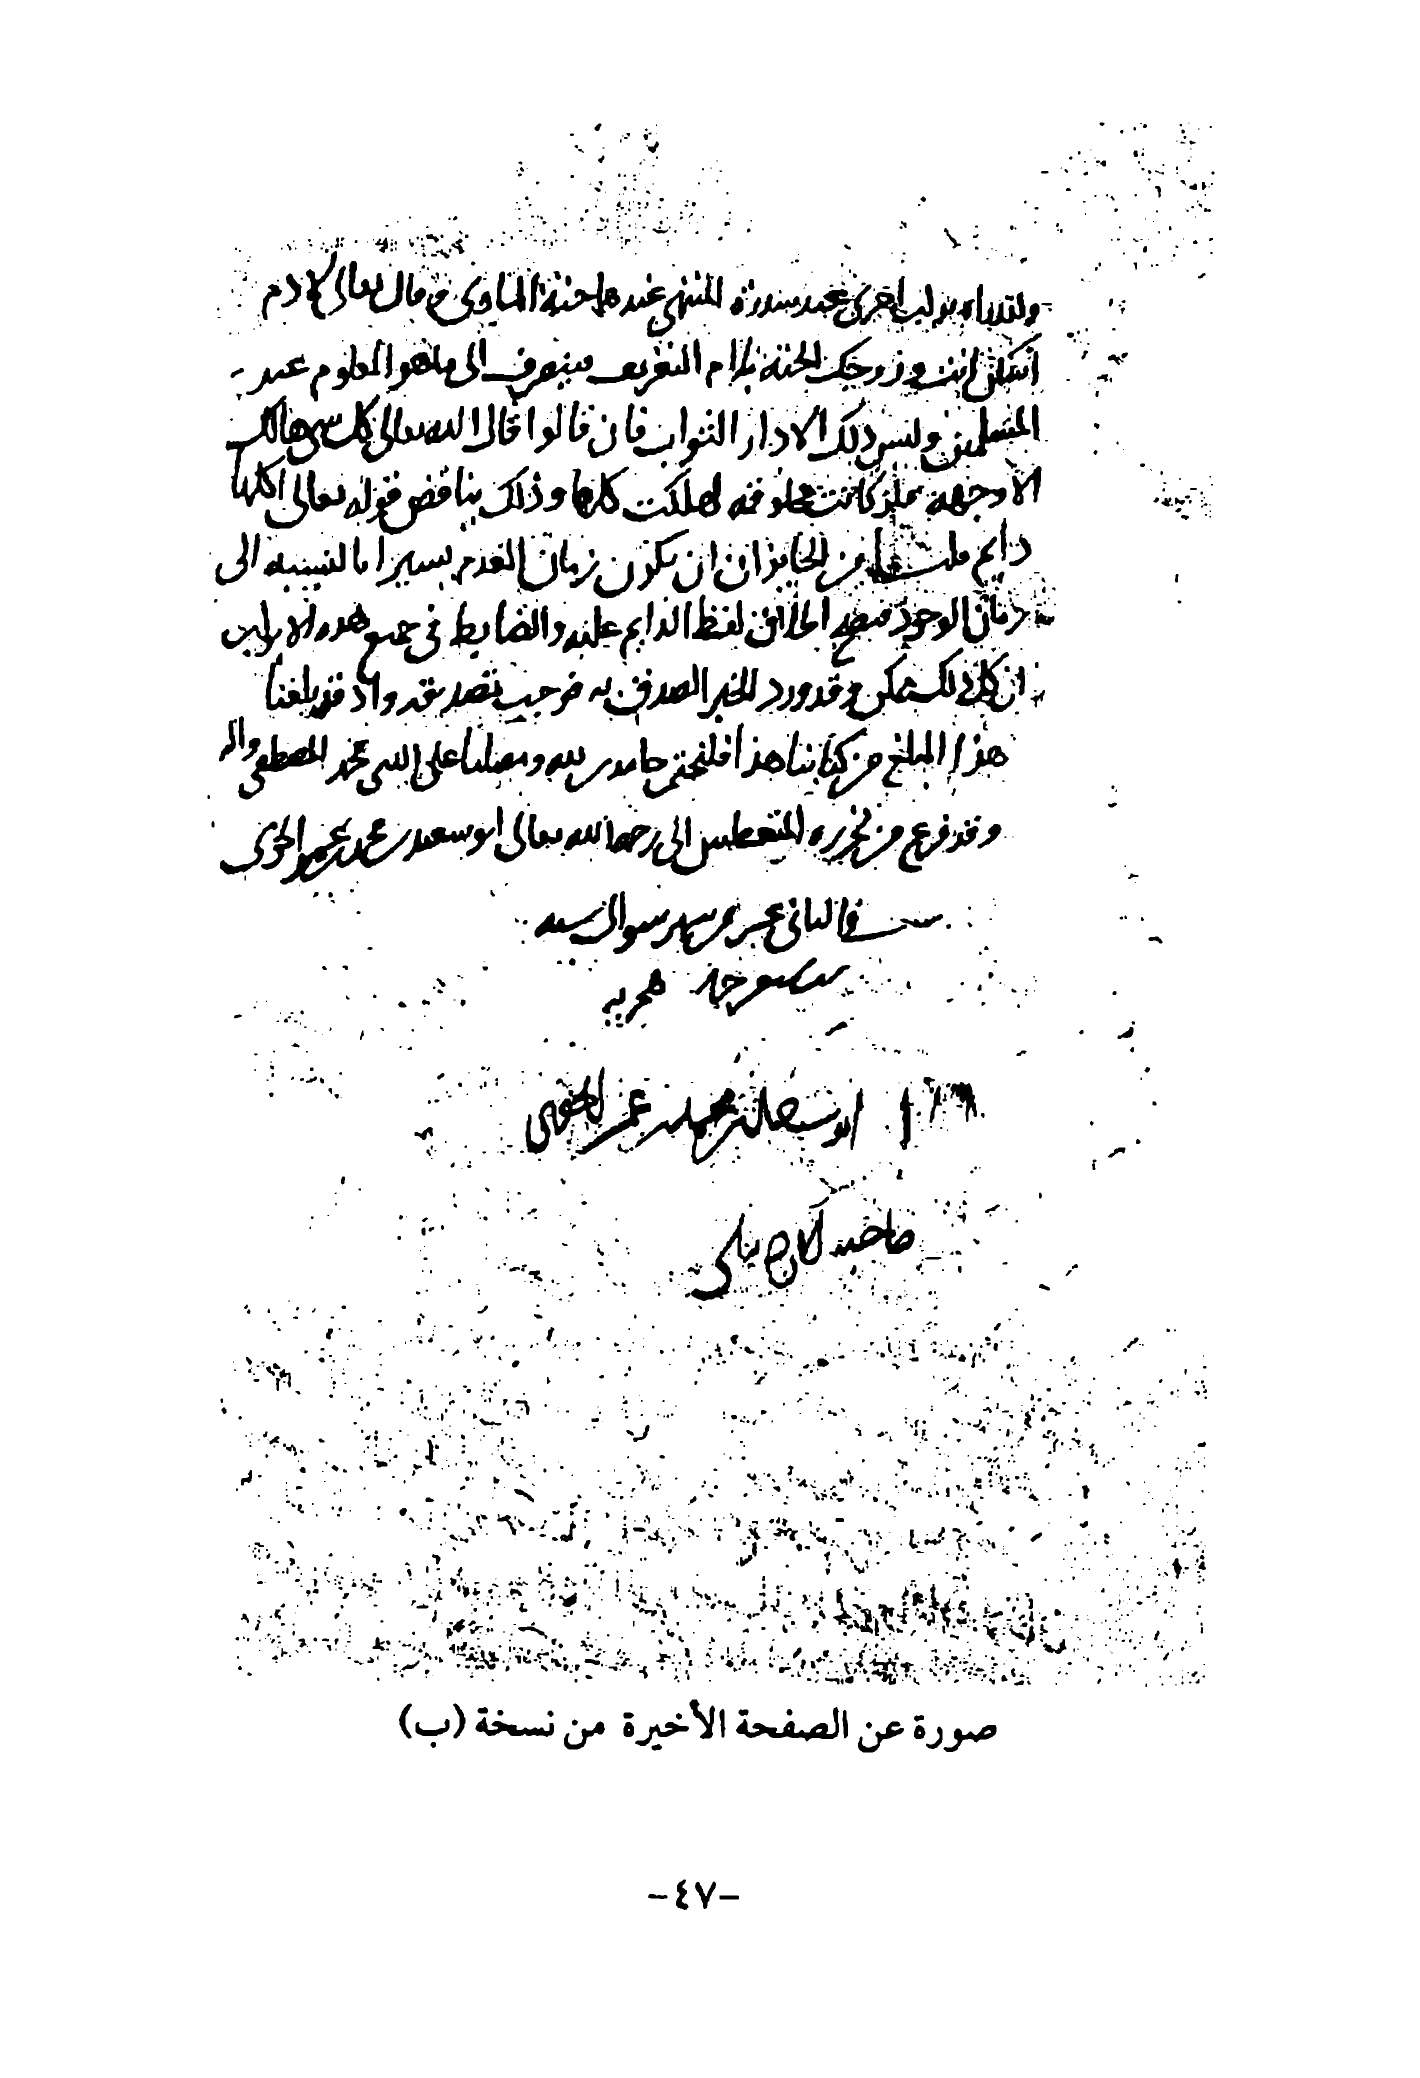 ولقد راه نزلة اخرى عند سدرة المنتهى عندها جنة الماوى وقال تعالى لادم
اسكن انت وزوجك الجنة بلام التعريف فينصرف الى ما هو المعلوم عند
المسلمين وليس ذلك الا دار الثواب فان قالوا قال الله تعالى كل شى هالك
الا وجهه فلو كانت مخلوقه لهلكت كلها وذلك يناقض قوله تعالى اكلها
دايم قلت من الجايز ان ان يكون زمان العدم يسيرا بالنسبه الى
زمان الوجود فيصح اطلاق لفظ الدايم عليه والضابط فى جميع هذه الابواب
ان كل ذلك ممكن وقد ورد الخبر الصدق به فوجب تصديقه واذ قد بلغنا
هذا المبلغ من كتابنا هذا فلنختم حامدين لله ومصليا على النبى محمد المصطفى واله
وقد فرغ من تحريره المتعطش الى رحمة الله تعالى ابو سعيد محمد بن
فى الثانى عشر من شهر شوال سنه
هجريه
ابو محمد بن عمر
صاحبه
صورة عن الصفحة الأخيرة من نسخة (ب)
-٤٧-